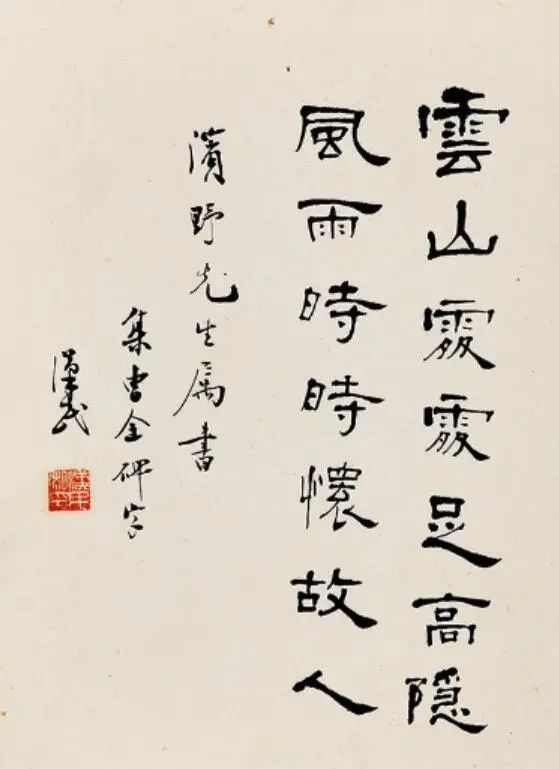 雲山處處足高隱
風雨時時懷故人
濱野先生屬書
集曹全碑字
漢民